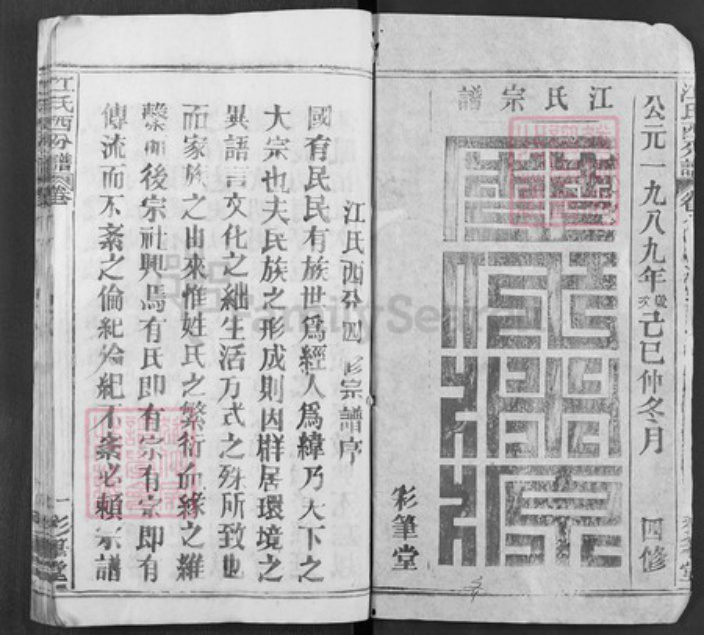 江氏宗譜
公元一九八九年歲次己巳仲冬月 四修
彩筆堂
江氏西分四修宗譜序
國有民民有族世爲經人爲緯乃天下之
大宗也夫民族之形成則因群居環境之
異語言文化之絀生活方式之殊所致也
而家族之由來惟姓氏之繁衍血緣之維
繫而後宗社興焉有氏即有宗有宗即有
傳流而不紊之倫紀倫紀不紊必賴宗譜
江氏西分譜 卷
彩筆堂
FamilySearch